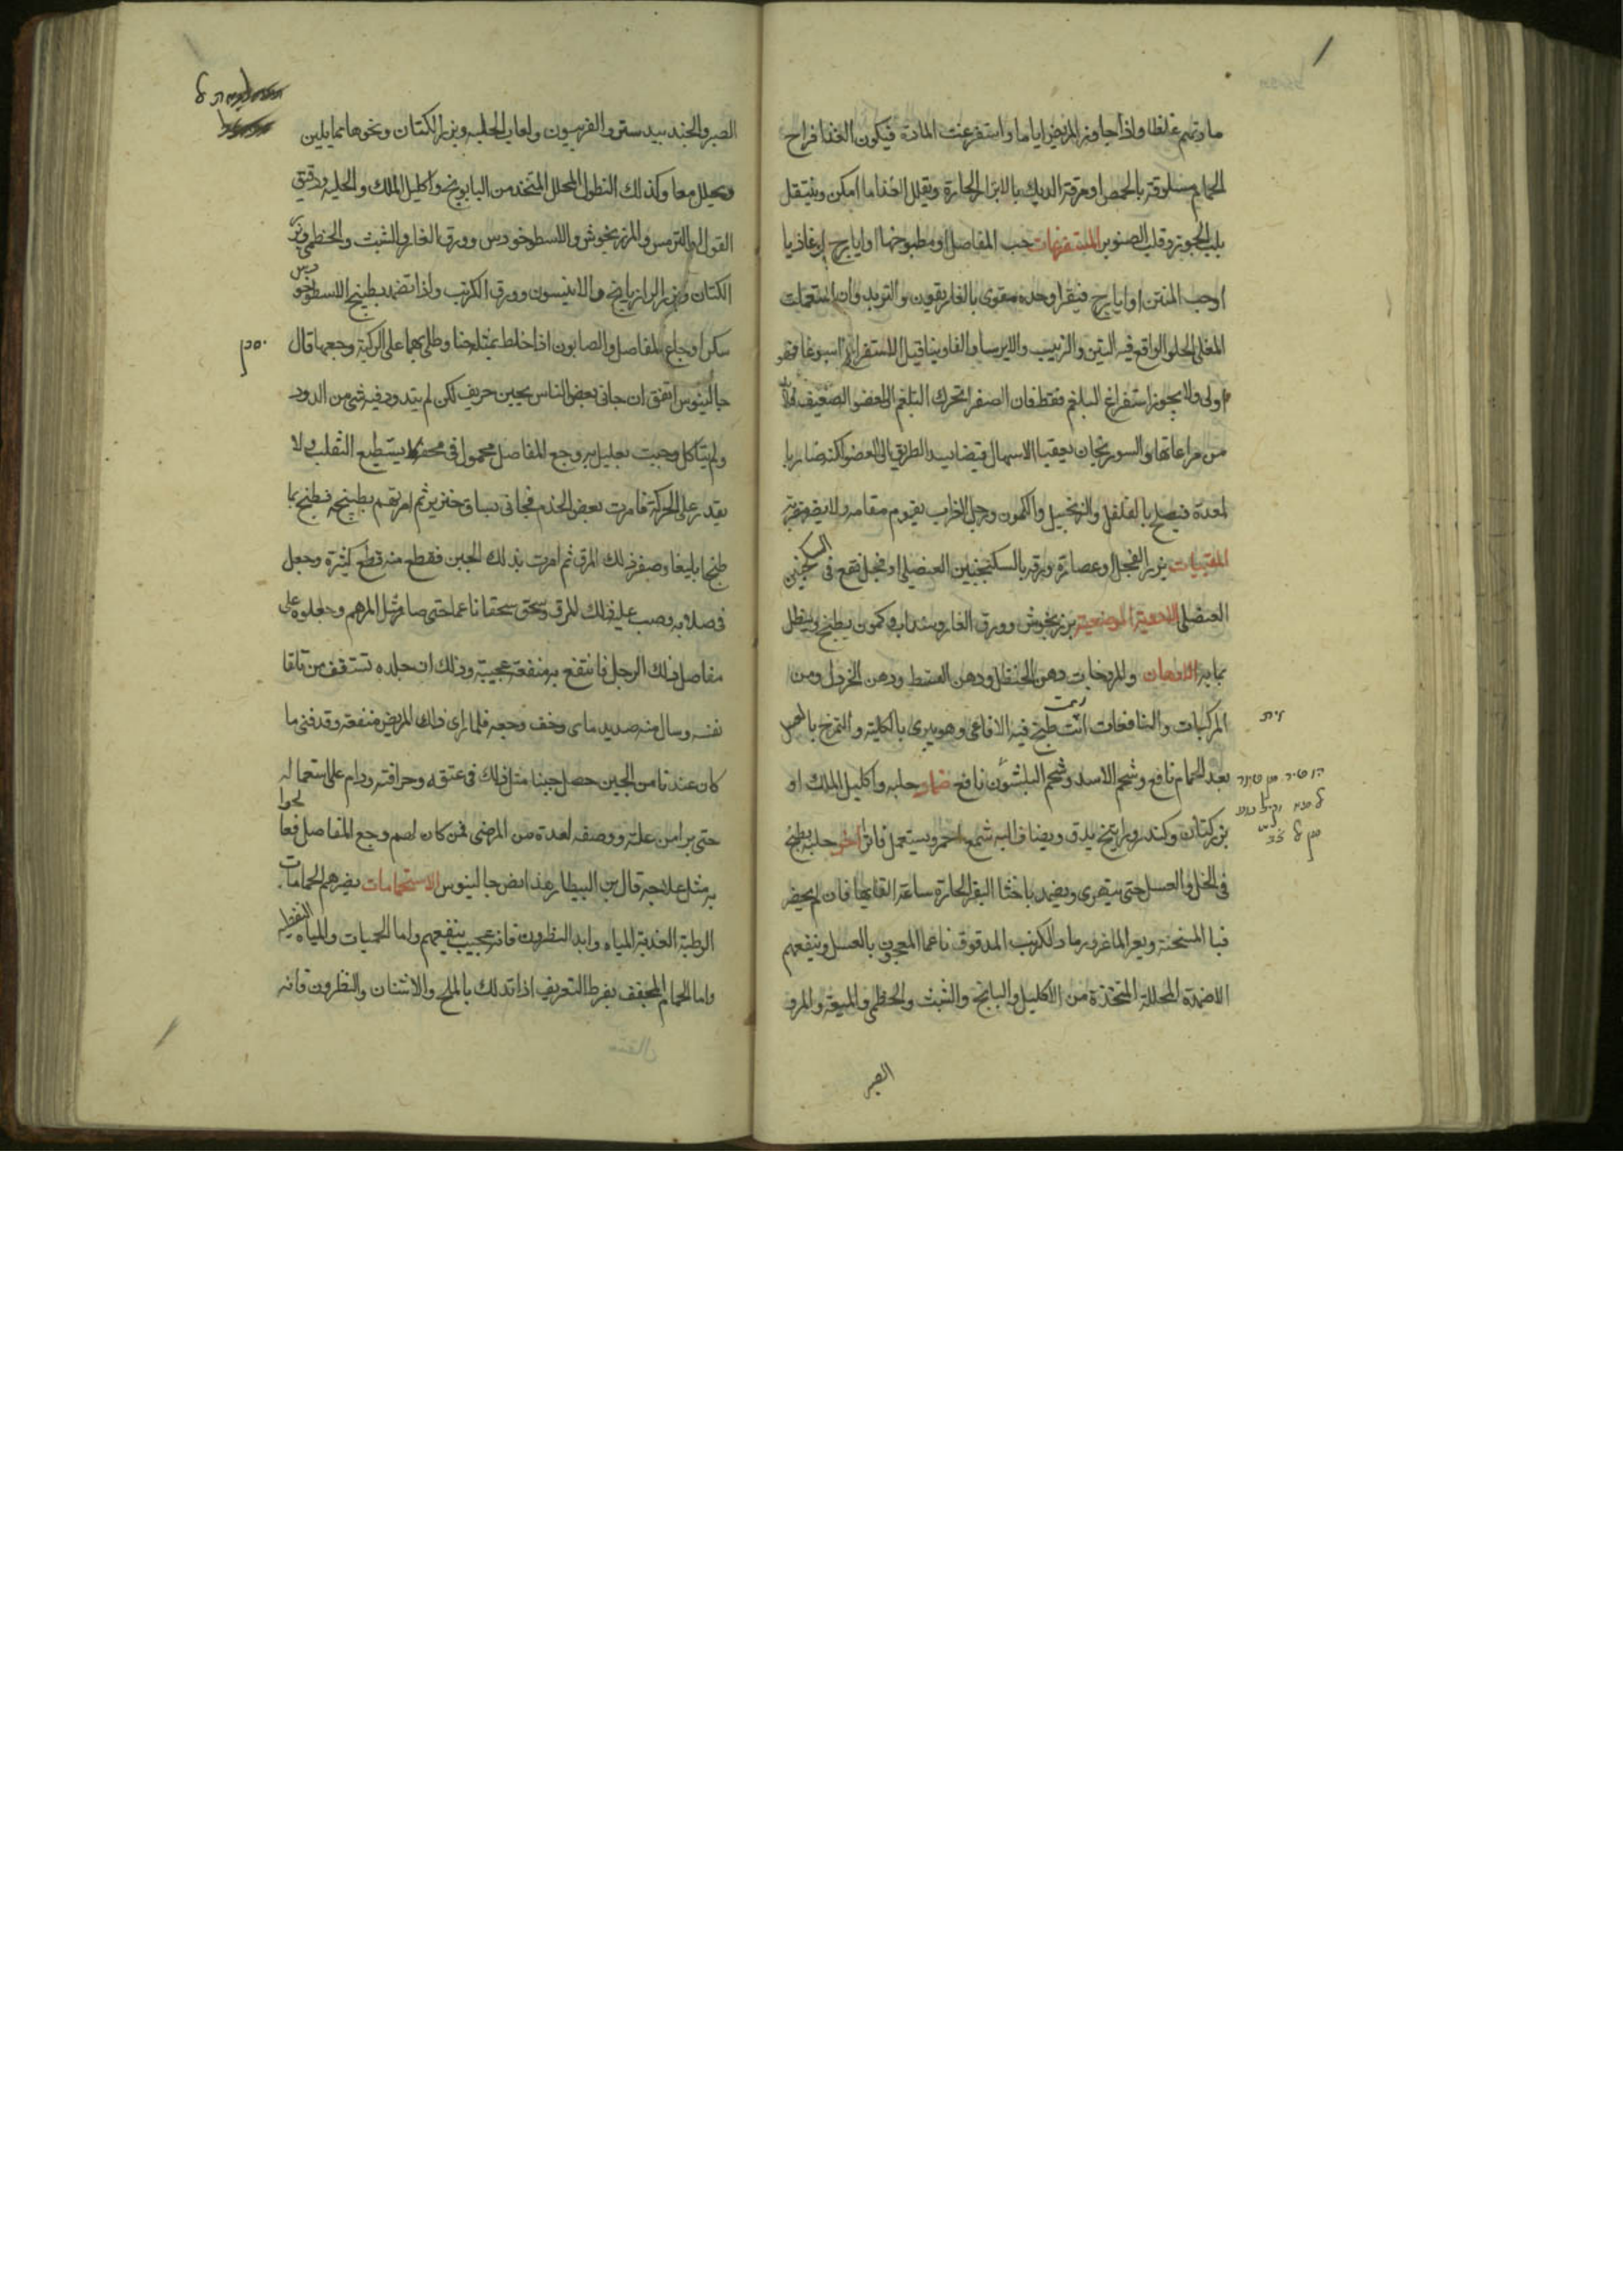 ما وتهم غلظا واذا جاوز المريض اياما واستفرغت المادة فيكون الغذا فراخ
الحمام مسلوقة بالحمص او مرقة الديك بالابزار الحارة ويقلل الغذا ما امكن ويتنقل
بلب الجوز وقلب الصنوبر المستفرغات حب المفاصل او مطبوخها او ايارج لوغاذيا
او حب المنتن او ايارج فيقرا وحده مقوى بالغاريقون والتربد وان استعملت
المغلى الحلو الواقع فيه التين والزبيب والايرسا والفاوينا قبل الاستفراغ اسبوعا فهو
اولى ولا يجوز استفراغ البلغم فقط فان الصفرا تحرك البلغم الى العضو الضعيف
من مراعاتها والسورنجان يعقب الاسهال قبضا يسد الطريق الى العضو لكنه ضار با
لمعدة فيصلح بالفلفل والزنجبيل والكمون ورجل الغراب يقوم مقامه ولا يضر مضرته
المقييات بزر الفجل او عصارة ورقه بالسكنجبين العنصلى او فجل نقع فى السكنجبين
العنصلى الادوية الموضعية مرزنجوش وورق الغار وسداب وكمون يطبخ وينطل
بمايه الادهان والمروخات دهن الحنظل ودهن القسط ودهن الخردل ومن
المركبات والنافعات زيت طبخ فيه الافاعى وهو يبرى بالكلية والتمرخ بالعسل
بعد الحمام نافع وشحم الاسد وشحم البلشون نافع ضماد حلبه واكليل الملك او
بزر كتان وكندر وراتينج يدق ويضاف اليه شمع احمر ويستعمل فاترا اخر حلبه يطبخ
فى الخل والعسل حتى يتهرى ويضمد باخثا البقر الحارة ساعة القايها فان لم يحضر
فبا المسخنة وبعر الماعز ورماد الكرنب المدقوق ناعما المعجون بالعسل وينفعهم
الاضمدة المحللة المتخذة من الاكليل والبابونج والشبث والخطمى والميعة والمر و
الصبر
الصبر والجندبيدستر والفربيون ولعاب الحلبه وبزر الكتان ونحوها مما يلين
ويحلل معا وكذلك النطول المحلل المتخذ من البابونج واكليل الملك والحلبه ودقيق
الفول والترمس والمرزنجوش والاسطوخودس وورق الغار والشبث والخطمى وبزر
الكتان وبزر الرازيانج والانيسون وورق الكرنب واذا تضمد بطبيخ الاسطوخودس
سكن اوجاع المفاصل والصابون اذا خلط بمثله حنا وطلى بهما على الركبة وجعها قال
جالينوس اتفق ان جانى بعض الناس بجبن حريف لكن لم يتدود فيه شى من الدود
ولم يتاكل وجيت بعليل به وجع المفاصل محمول فى محفه لا يستطيع التقلب ولا
يقدر على الحركة فامرت بعض الخدم فجانى بساق خنزير ثم امرتهم بطبيخه فطبخ بما
طبخا بليغا وصفر ذلك المرق ثم امرت بذلك الجبن فقطع منه قطع كثيرة وجعل
فى صلايه وصب عليه ذلك المرق وسحق سحقا ناعما حتى صار مثل المرهم وجعلوه على
مفاصل ذلك الرجل فانتفع به منفعة عجيبة وذلك ان جلده تشقق من تلقا
نفسه وسال منه صديد ماى وخف وجعه فلما راى ذلك المريض منفعته وقد فنى ما
كان عندنا من الجبن حصل جبنا مثل ذلك فى عتقه وحرافته ودام على استعماله
حتى برا من علته ووصفه لعدة من المرضى ممن كان بهم وجع المفاصل فعالجوا
به مثل علاجه قال بن البيطار هذا نص جالينوس الاستحمامات يضرهم الحمامات
الرطبة العذبة المياه وابدا النطرون فانه عجيب ينفعهم واما الحميات والمياه النفطيه
واما الحمام المجفف يفرط التعريق اذا تدلك بالملح والاشنان والنطرون فانه